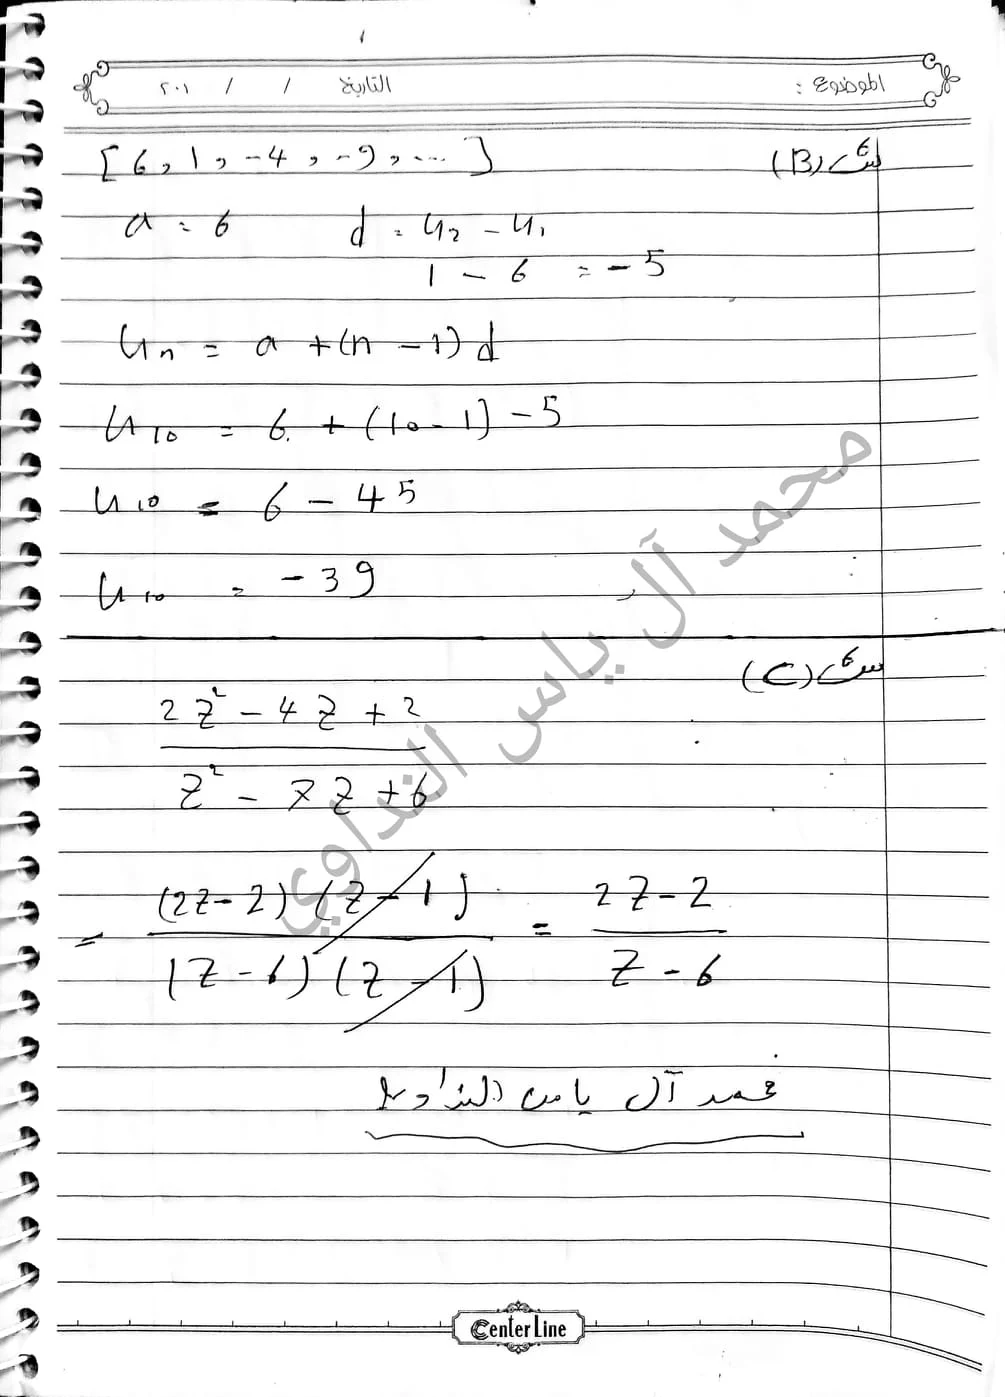 الموضوع : التاريخ / / ٢٠١
س٦ (B) [6, 1, -4, -9, ...]
a = 6 d = u₂ - u₁
1 - 6 = -5
uₙ = a + (n - 1) d
u₁₀ = 6 + (10 - 1) - 5
u₁₀ = 6 - 45
u₁₀ = -39
س٦ (C)
2z² - 4z + 2
z² - 7z + 6
= (2z-2)(z-1) = 2z-2
(z-6)(z-1) z-6
محمد آل ياس النداوي
محمد آل ياس النداوي
Center Line